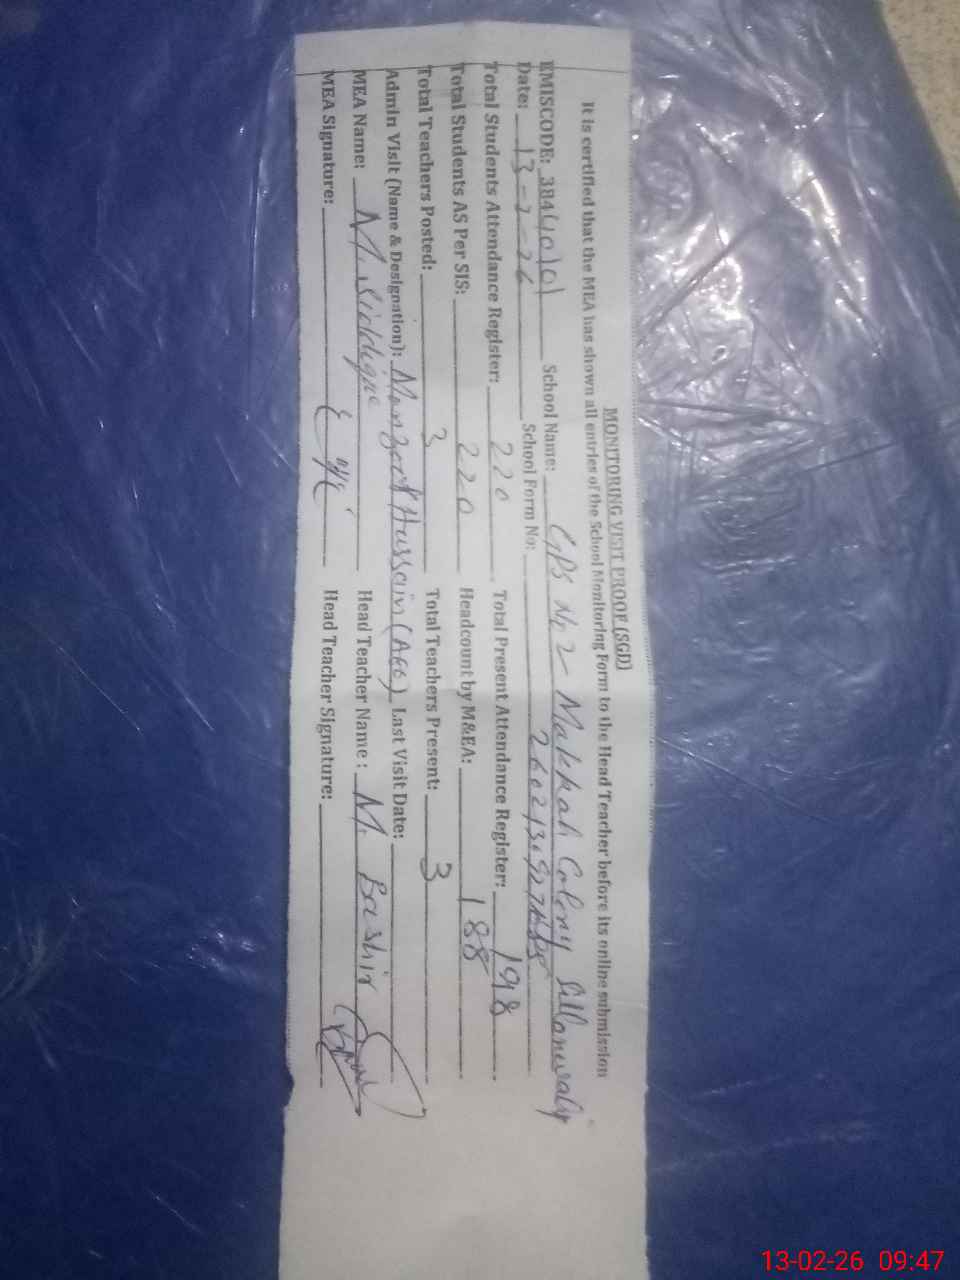 MONITORING VISIT PROOF (SGD)
It is certified that the MEA has shown all entries of the School Monitoring Form to the Head Teacher before its online submission
EMISCODE: 38440101 School Name: GPS No 2 Makkah Colony Sillanwali
Date: 13-2-26 School Form No:
Total Students Attendance Register: 220 Total Present Attendance Register: 198
Total Students AS Per SIS: 220 Headcount by M&EA: 188
Total Teachers Posted: 3 Total Teachers Present: 3
Admin Visit (Name & Designation): Manzoor Hussain (AEO) Last Visit Date:
MEA Name: M. Siddique Head Teacher Name: M. Bashir
MEA Signature: Head Teacher Signature:
13-02-26 09:47